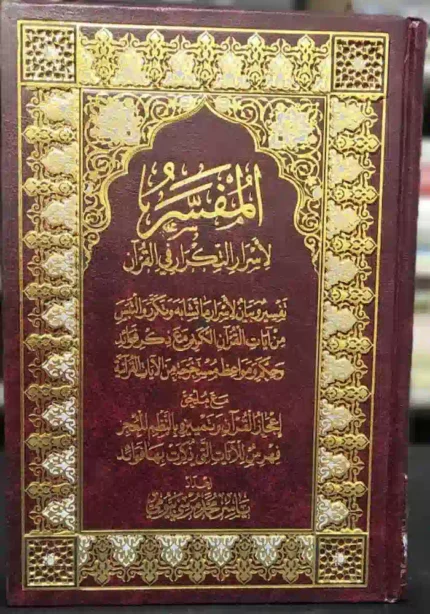 المُفَسَّرُ
لأسْرَارِ التِّكْرَارِ فِي القُرْآن
تفسير وبيان لأسرار ما تشابه وتكرر والتبس
من آيات القرآن الكريم مع ذكر فوائد
وحكم ومواعظ مستخرجة من الآيات القرآنية
مع ملحق
إعجاز القرآن بن تمييزه بالنظم المعجز
فهرس الآيات التي ذكرت بها فوائد
إعداد
ياسر محمد مرسي بيومي